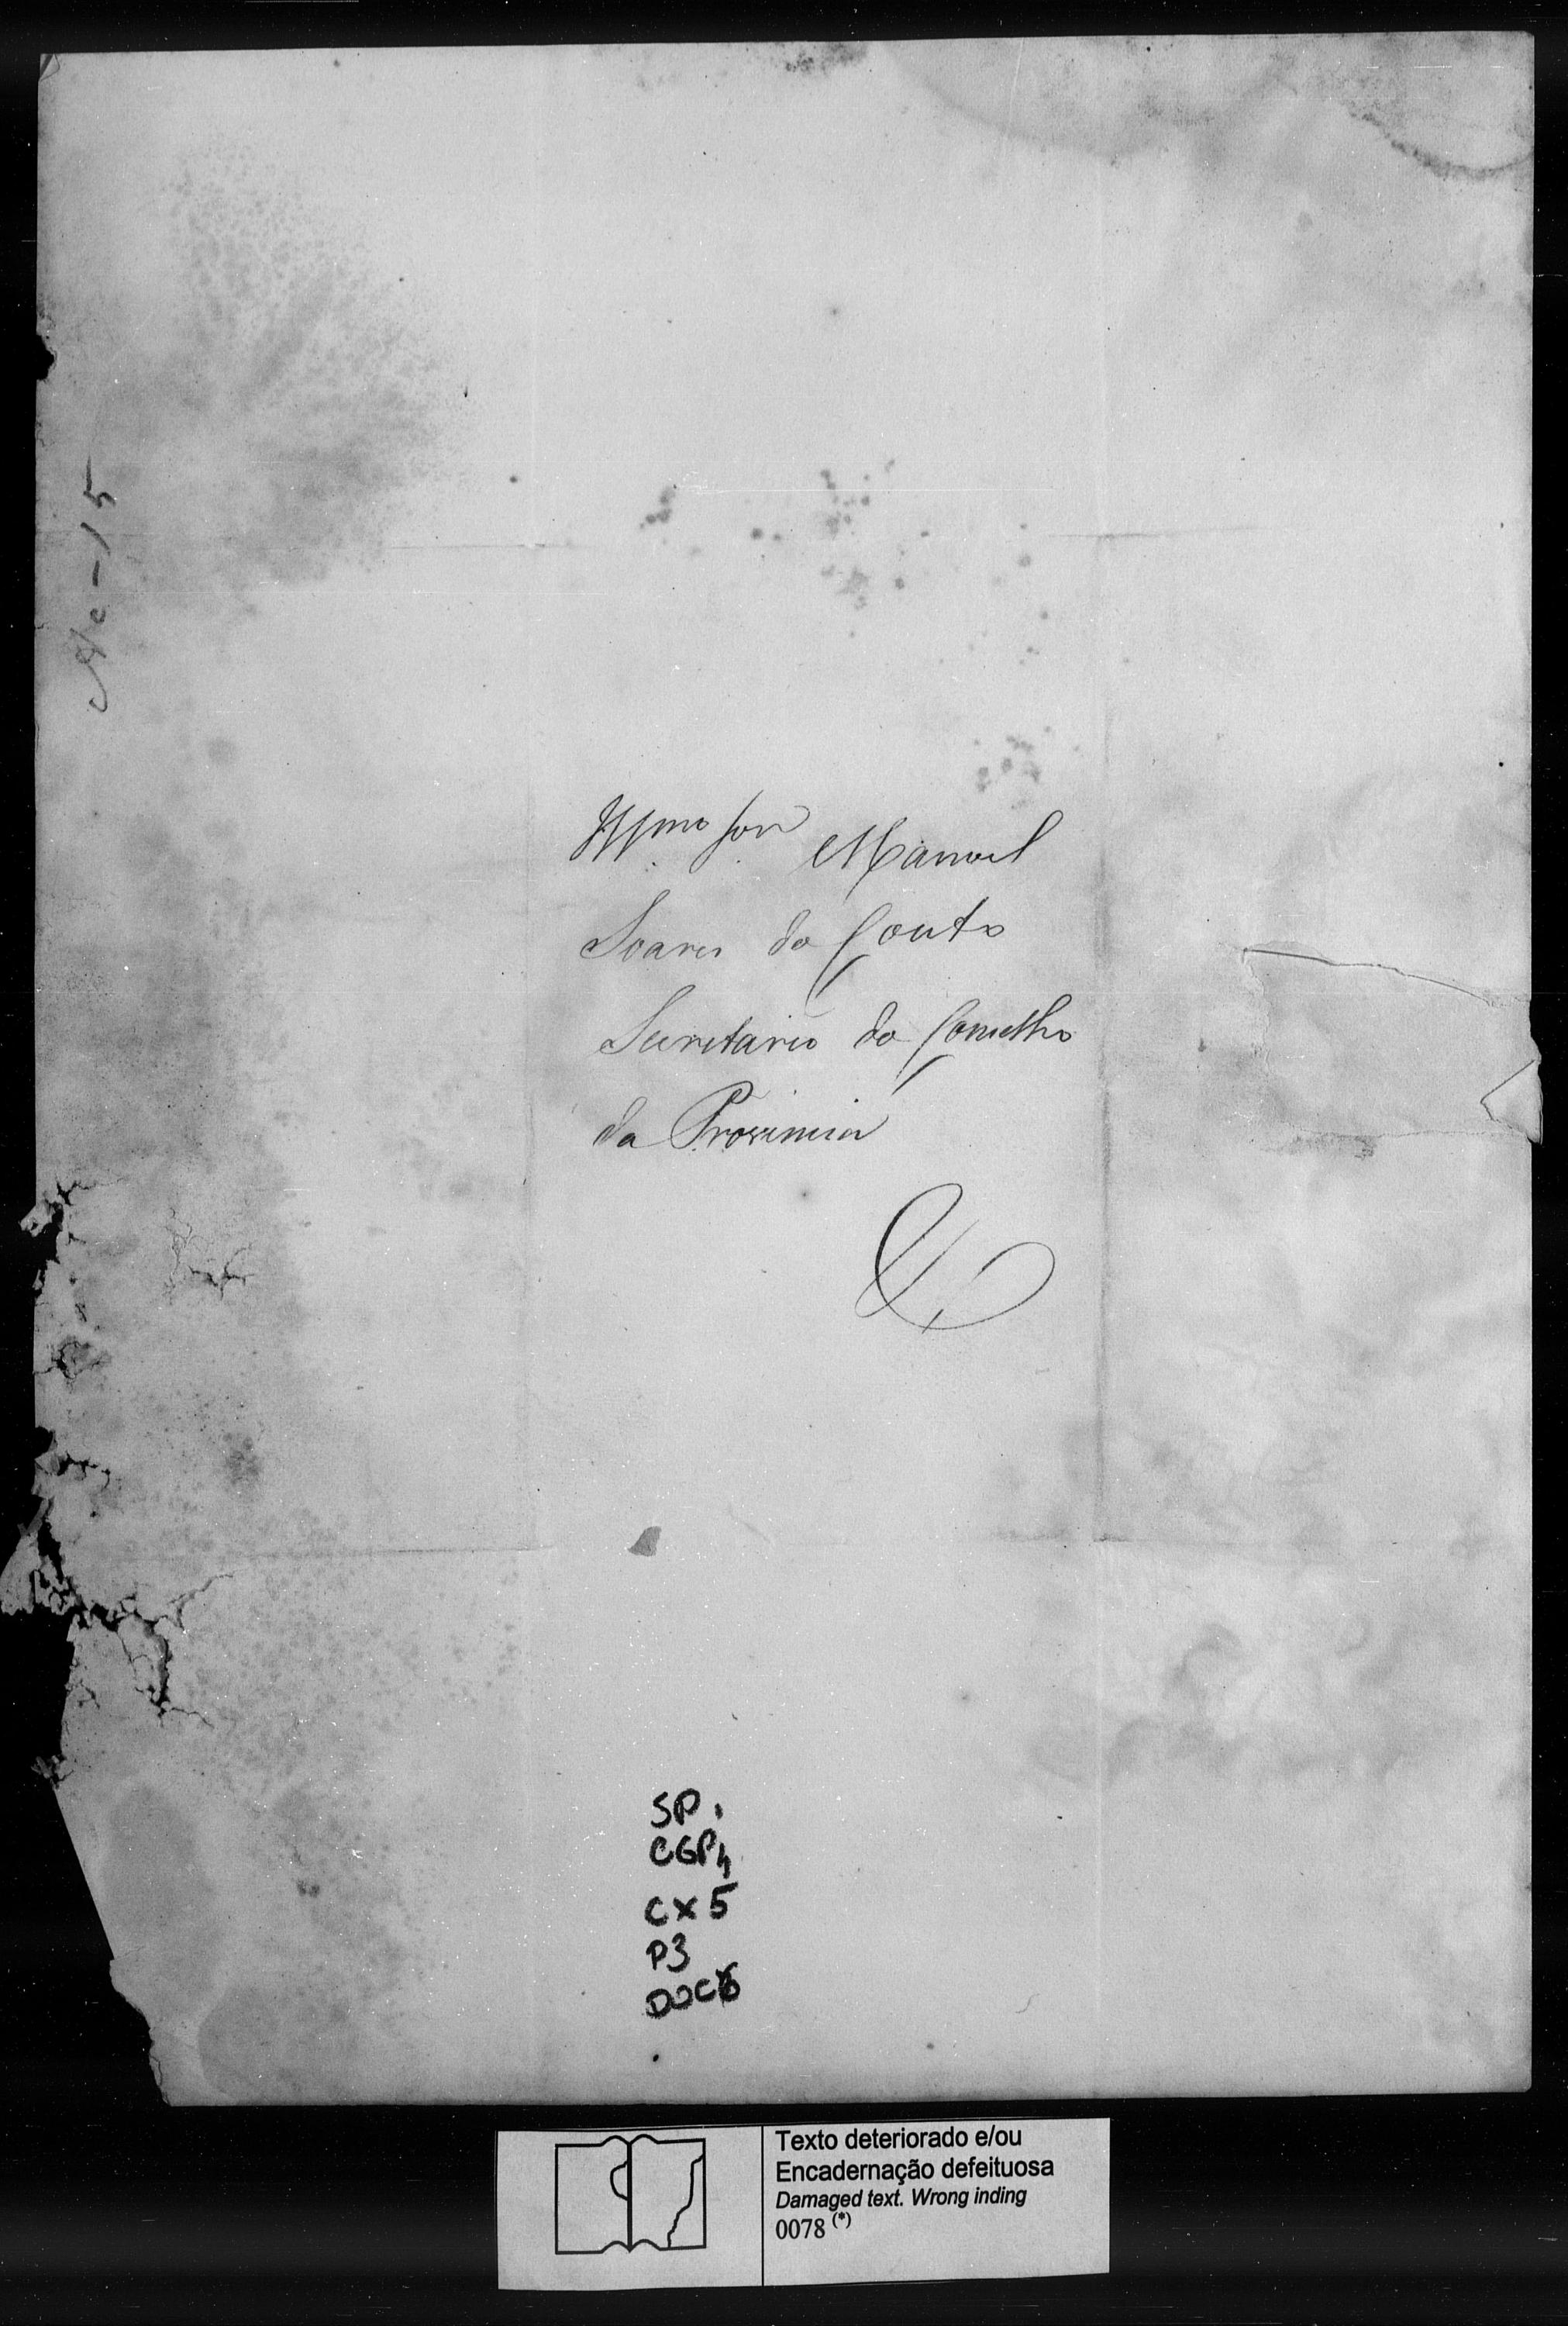 No-15
Illmo Snr Manoel
Soares do Couto
Secretario do Conselho
da Provincia
SP.
CGP4
CX5
P3
DOC
Texto deteriorado e/ou
Encadernação defeituosa
Damaged text. Wrong inding
0078 (*)